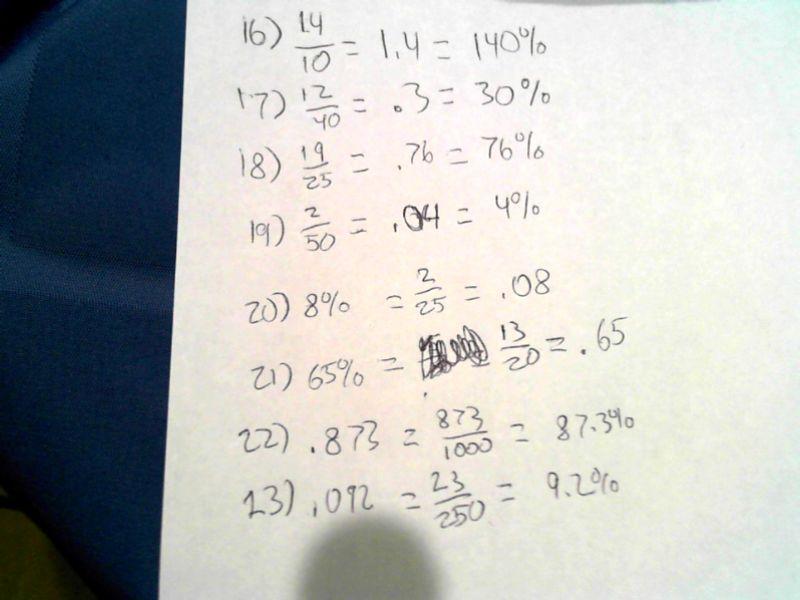 16) 14/10 = 1.4 = 140%
17) 12/40 = .3 = 30%
18) 19/25 = .76 = 76%
19) 2/50 = .04 = 4%
20) 8% = 2/25 = .08
21) 65% = 13/20 = .65
22) .873 = 873/1000 = 87.3%
23) .092 = 23/250 = 9.2%